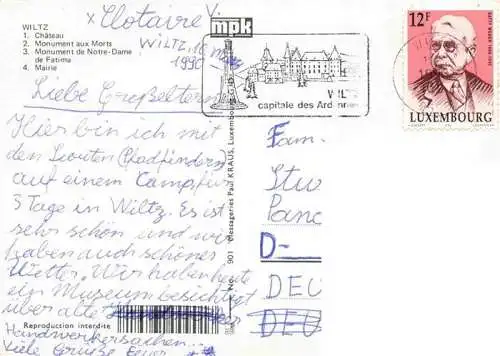 x Clotaire V.
WILTZ
1. Château
2. Monument aux Morts
3. Monument de Notre-Dame
de Fatima
4. Mairie
Wiltz, 10 März
1990
Liebe Großeltern
Hier bin ich mit
den Scouten (Pfadfindern)
auf einem Camp für
5 Tage in Wiltz. Es ist
sehr schön und wir
haben auch schönes
Wetter. Wir haben heute
ein Museum besichtigt
über alte
Handwerkersachen...
Viele Grüsse Euer
Reproduction interdite
No. 901 Messageries Paul KRAUS, Luxembourg
mpk
WILTZ
capitale des Ardennes
12F
LUXEMBOURG
Fam.
D-
DEU
DEU